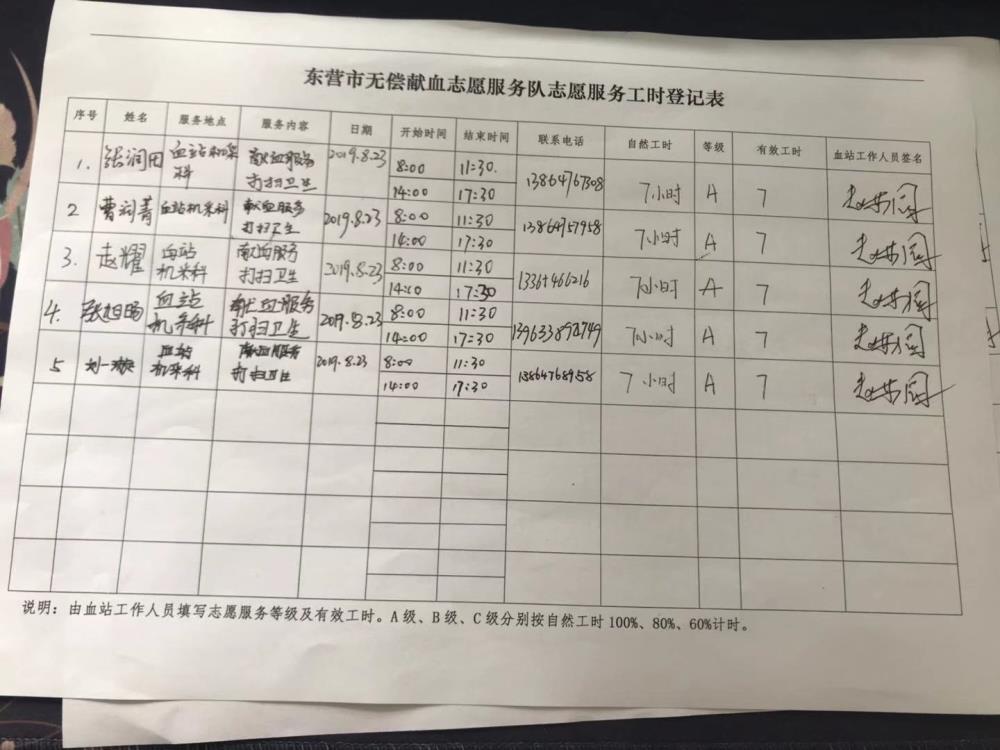 东营市无偿献血志愿服务队志愿服务工时登记表
序号 姓名 服务地点 服务内容 日期 开始时间 结束时间 联系电话 自然工时 等级 有效工时 血站工作人员签名
1. 张润田 血站机采科 献血服务 打扫卫生 2019.8.23 8:00 11:30. 13864767308 7小时 A 7
14:00 17:30
2 曹润菁 血站机采科 献血服务 打扫卫生 2019.8.23 8:00 11:30 13864757958 7小时 A 7
14:00 17:30
3. 赵耀 血站机采科 献血服务 打扫卫生 2019.8.23 8:00 11:30 7小时 A 7
14:00 17:30
4. 张旭阳 血站机采科 献血服务 打扫卫生 2019.8.23 8:00 11:30 7小时 A 7
14:00 17:30
5 刘一璇 血站机采科 献血服务 打扫卫生 2019.8.23 8:00 11:30 13864768958 7小时 A 7
14:00 17:30
说明：由血站工作人员填写志愿服务等级及有效工时。A级、B级、C级分别按自然工时100%、80%、60%计时。